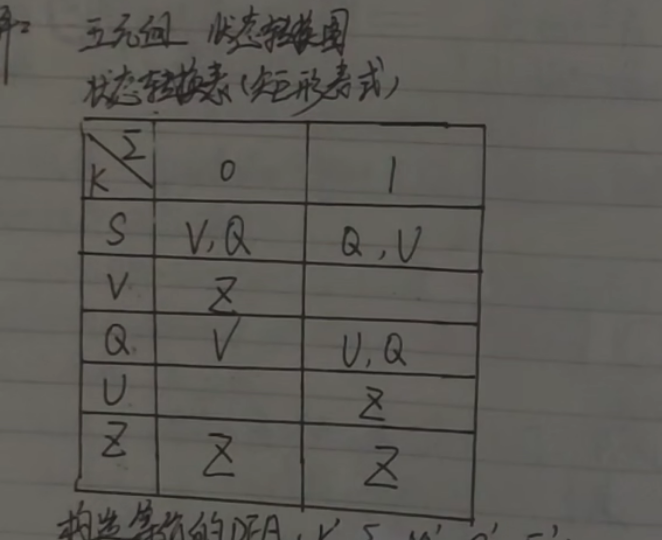 五元组 状态转换图
状态转换表(矩形表式)
K Σ 0 1
S V,Q Q,U
V Z
Q V U,Q
U Z
Z Z Z
构造等价的DFA